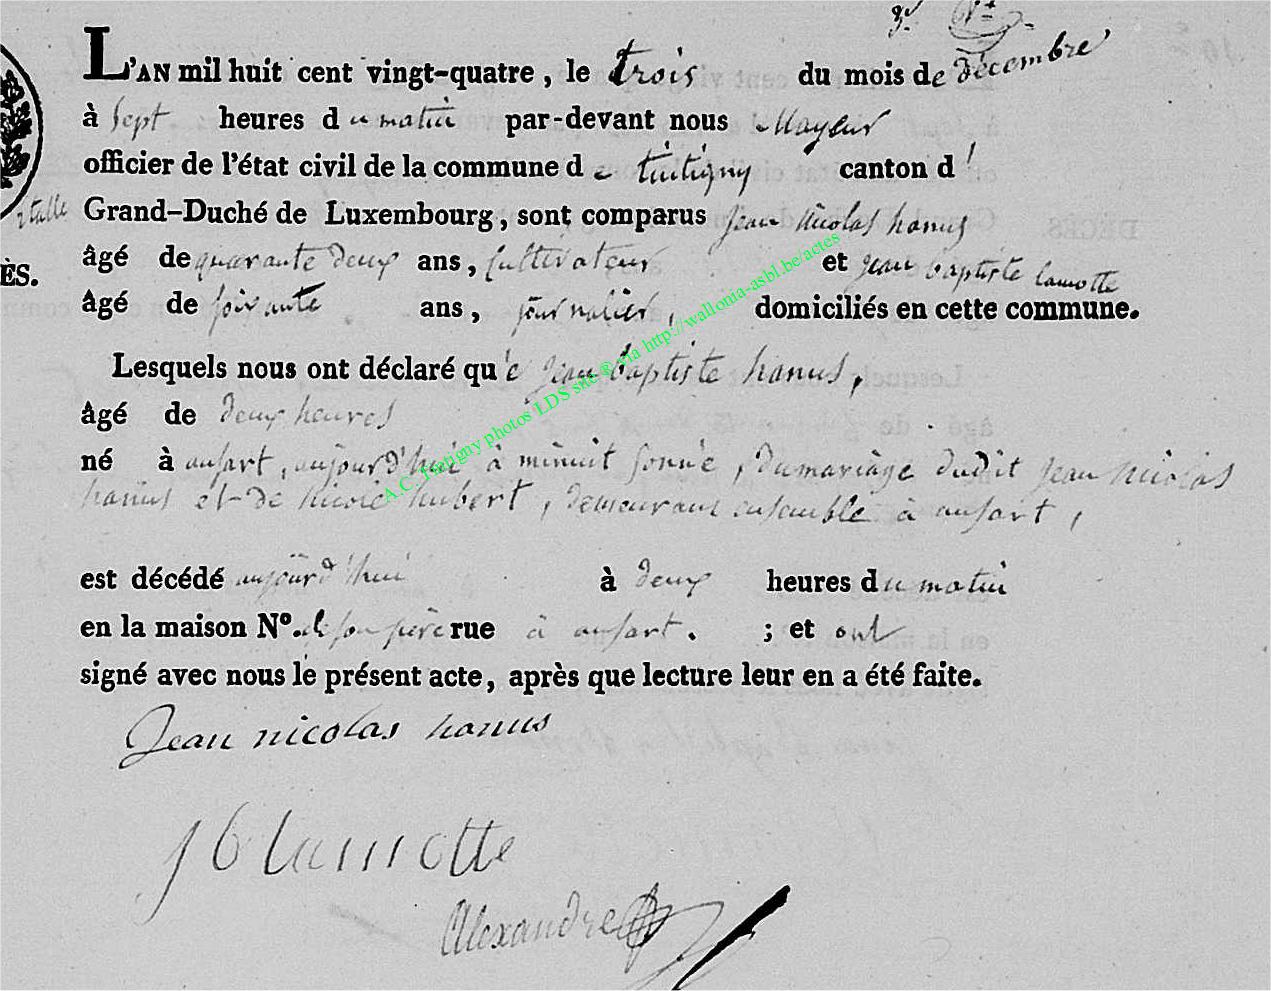 L'AN mil huit cent vingt-quatre, le trois du mois de décembre
à sept heures du matin par-devant nous Mayeur
officier de l'état civil de la commune de tintigny canton d'
Grand-Duché de Luxembourg, sont comparus jean nicolas hanus
âgé de quarante deux ans, cultivateur et jean baptiste lamotte
ÈS.
âgé de soixante ans, journalier, domiciliés en cette commune.
Lesquels nous ont déclaré que jean baptiste hanus,
âgé de deux heures
né à ansart, aujourd'hui à minuit sonné, du mariage dudit jean nicolas
hanus et de hubert, demeurant ensemble à ansart,
est décédé aujourd'hui à deux heures du matin
en la maison N°. de son père rue à ansart. ; et ont
signé avec nous le présent acte, après que lecture leur en a été faite.
Jean nicolas hanus
J b lamotte
Alexandre
A.C. Tintigny photos LDS site ® via http://wallonia-asbl.be/actes